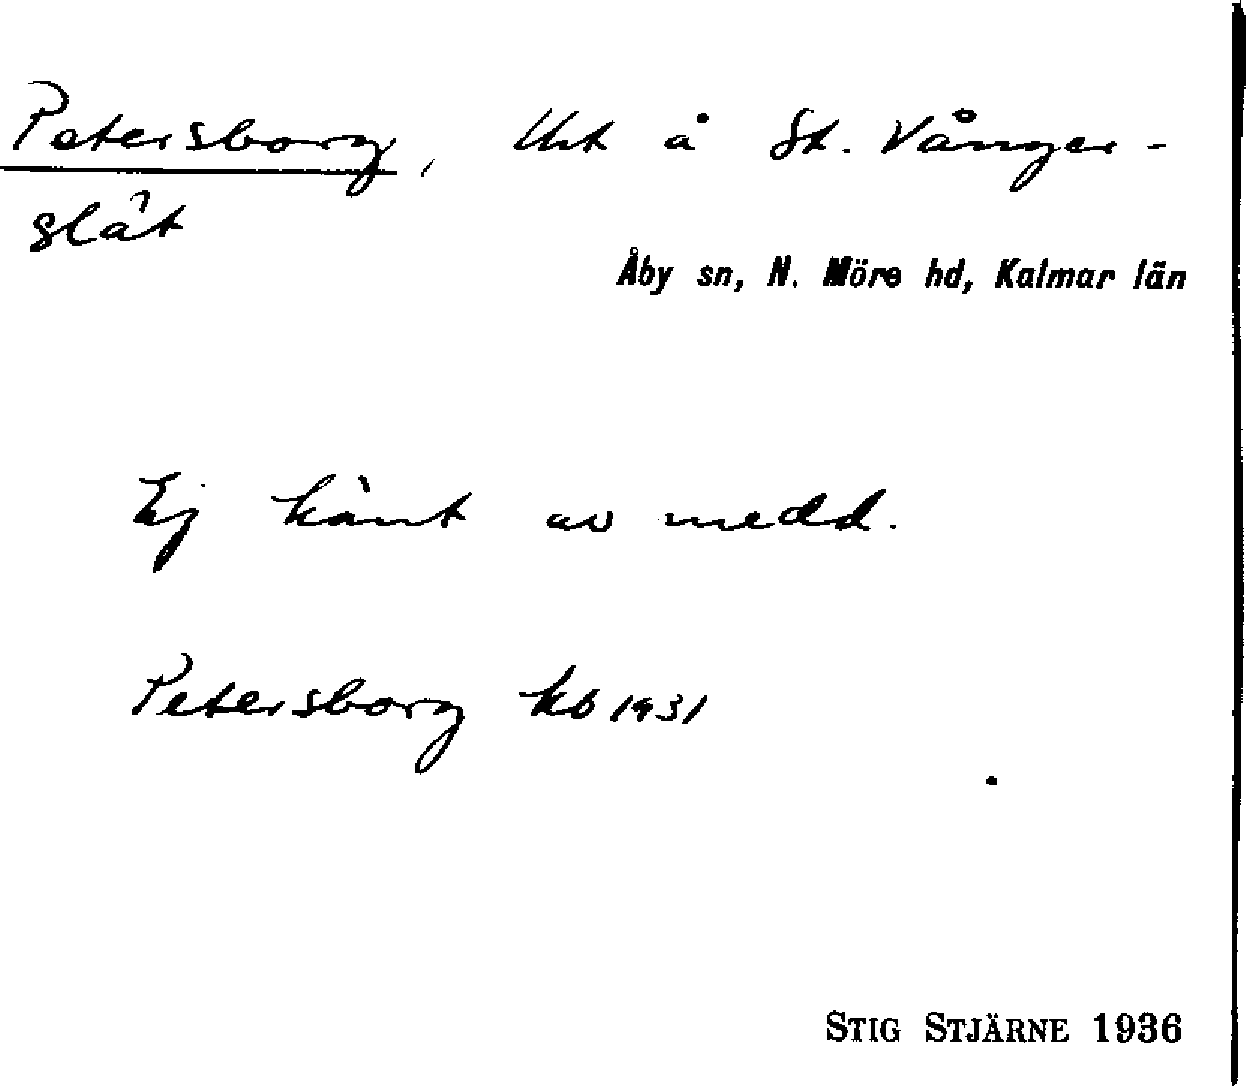 Petersborg, Uht å St. Vånger-
slät
Åby sn, N. Möre hd, Kalmar län
Ej känt av medd.
Petersborg kb 1931
STIG STJÄRNE 1936